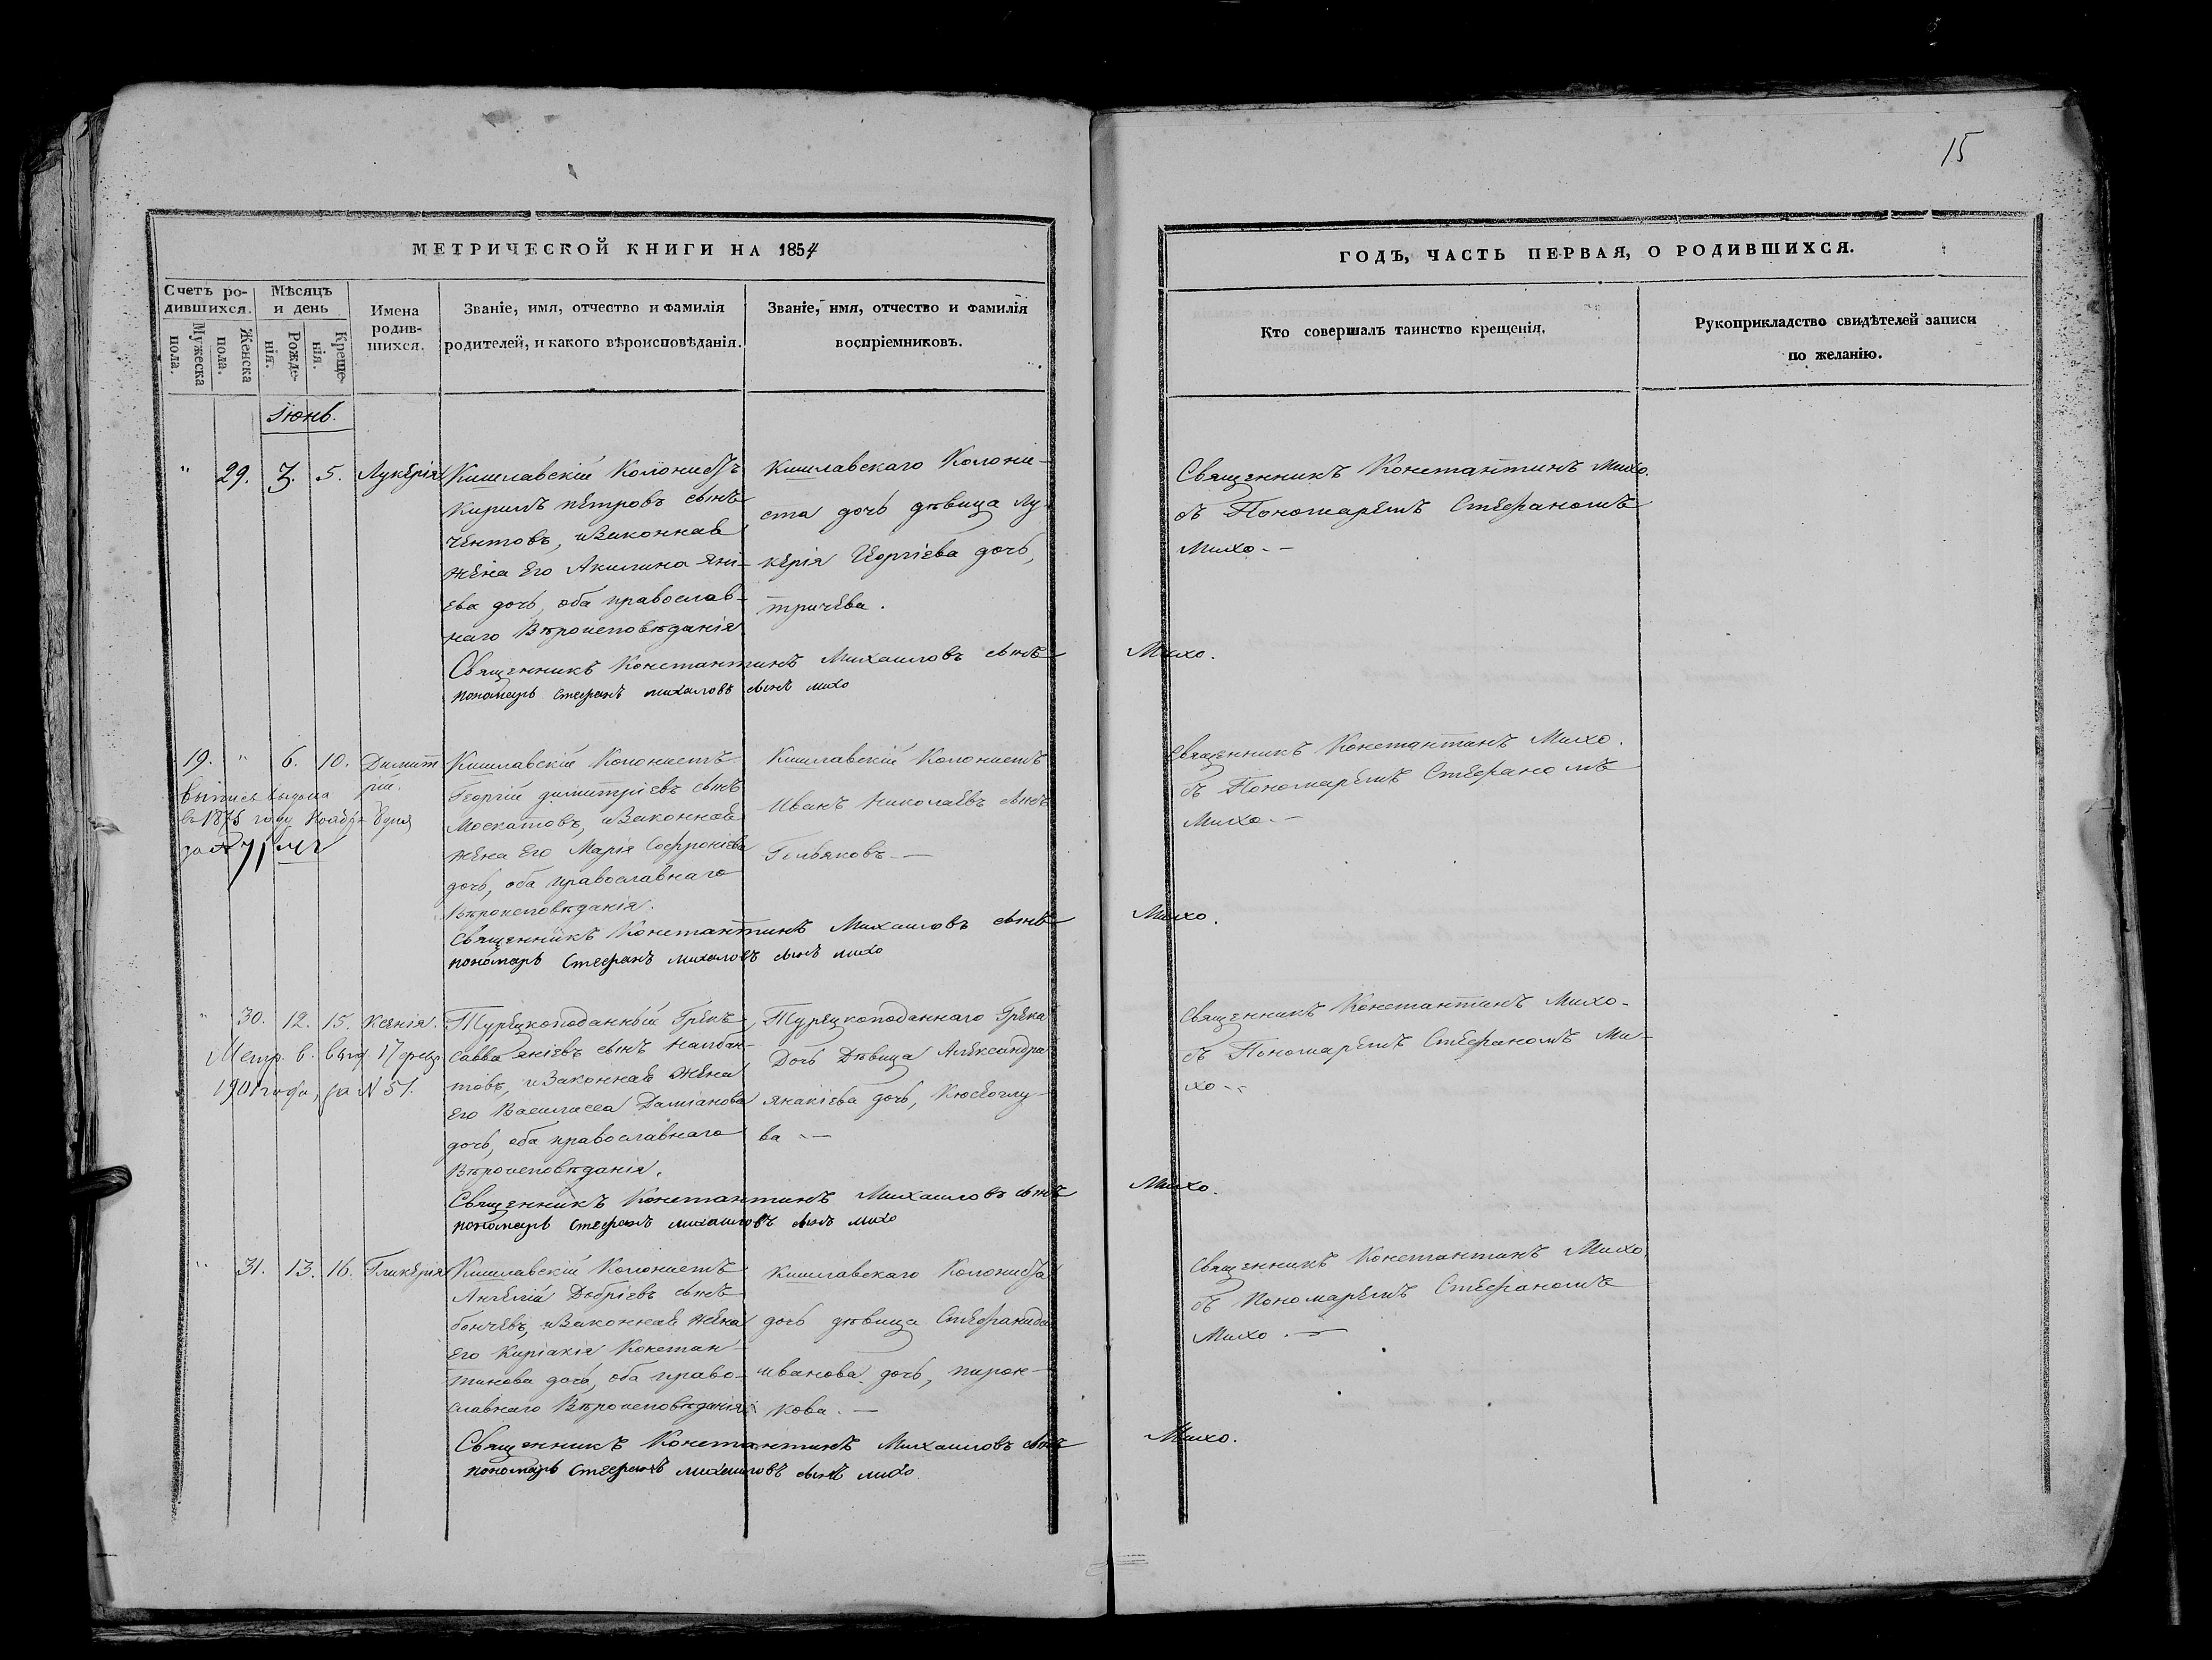 15
МЕТРИЧЕСКОЙ КНИГИ НА 1854
Счетъ ро-
дившихся.
Мужеска
пола.
Женска
пола.
Мѣсяцъ
и день
Рожде-
нія.
Креще-
нія.
Имена
родив-
шихся.
Званіе, имя, отчество и фамилія
родителей, и какого вѣроисповѣданія.
Званіе, имя, отчество и фамилія
воспріемниковъ.
Іюнь.
" 29. 3. 5. Лукерія
Кишлавскій Колонистъ
Кирилъ петровъ сынъ
Чентовъ, и Законная
Жена Его Акилина Яні-
ева дочь, оба православ-
наго Вѣроисповѣданія
Кишлавскаго Колони-
ста дочь дѣвица Лу-
керія Георгіева дочь,
тричева.
Священникъ Константинъ Михаиловъ сынъ
пономарь Стефанъ михаловъ сынъ михо
19. " 6. 10. Димит
рій.
Выпись выдана
въ 1875 году Ноября
за №
Кишлавскій Колонистъ
Георгій димитріевъ сынъ
Москатовъ, и Законная
Жена Его Марія Софроніева
дочь, оба православнаго
Вѣроисповѣданія.
Кишлавскій Колонистъ
Иванъ Николаевъ сынъ
Гольяковъ. —
Священникъ Константинъ Михаиловъ сынъ
пономарь Стефанъ михаловъ сынъ михо
" 30. 12. 15. Ксенія.
Метр. в. выд. 17 февр.
1901 года, за № 51.
Турецкоподанный Грекъ
Савва яніевъ сынъ Налбан-
товъ, и Законная Жена
Его Василисса Даміанова
дочь, оба православнаго
Вѣроисповѣданія.
Турецкоподаннаго Грека
Дочь Дѣвица Александра
янакіева дочь, Кюсеоглу-
ва —
Священникъ Константинъ Михаиловъ сынъ
пономарь Стефанъ михаиловъ сынъ михо
" 31. 13. 16. Гликерія
Кишлавскій Колонистъ
Ангелій Добріевъ сынъ
бончевъ, и Законная Жена
Его Киріакія Констан-
тинова дочь, оба право-
славнаго Вѣроисповѣданія
Кишлавскаго Колониста
дочь дѣвица Стефанида
иванова дочь, пирон-
кова. —
Священникъ Константинъ Михаиловъ сынъ
пономарь Стефанъ михаиловъ сынъ михо
ГОДЪ, ЧАСТЬ ПЕРВАЯ, О РОДИВШИХСЯ.
Кто совершалъ таинство крещенія.
Рукоприкладство свидѣтелей записи
по желанію.
Священникъ Константинъ Михо.
съ Пономаремъ Стефаномъ
Михо. —
Михо.
Священникъ Константинъ Михо.
съ Пономаремъ Стефаномъ
Михо. —
Михо.
Священникъ Константинъ Михо-
съ Пономаремъ Стефаномъ Ми-
хо —
Михо.
Священникъ Константинъ Михо.
съ Пономаремъ Стефаномъ
Михо. —
Михо.